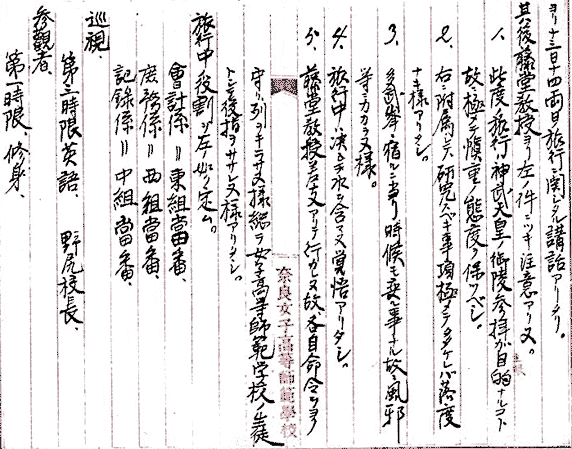 ヨリ十三日十四両日旅行ニ関シテノ講話アリタリ。
其後藤堂教授ヨリ左ノ件ニツキ注意アリタリ。
1、此度ノ旅行ハ神武天皇ノ御陵参拝ガ目的ナルコト
故ニ極テ慎重ノ態度ヲ保ツベシ。
2、右ニ附属シテ研究スベキ事項極メテ多ケレバ落度
ナキ様アリタシ。
3、多武峯ニ宿ルニ当リ時候モ変ル事ナル故ニ風邪
等ニカカラヌ様。
4、旅行中ハ決シテ水ヲ含マヌ覚悟アリタシ。
5、藤堂教授差支アリテ行カレヌ故、各自命令ヲヨク
守リ列ヲキラサヌ様総テ女子高等師範学校ノ生徒
トシテ後指ヲササレヌ様アリタシ。
旅行中ノ役割ヲ左ノ如ク定ム。
會計係＝東組當番、
庶務係＝西組當番、
記録係＝中組當番、
巡視、
第三時限英語、 野尻校長、
参觀者、
第一時限 修身、
奈良女子高等師範學校